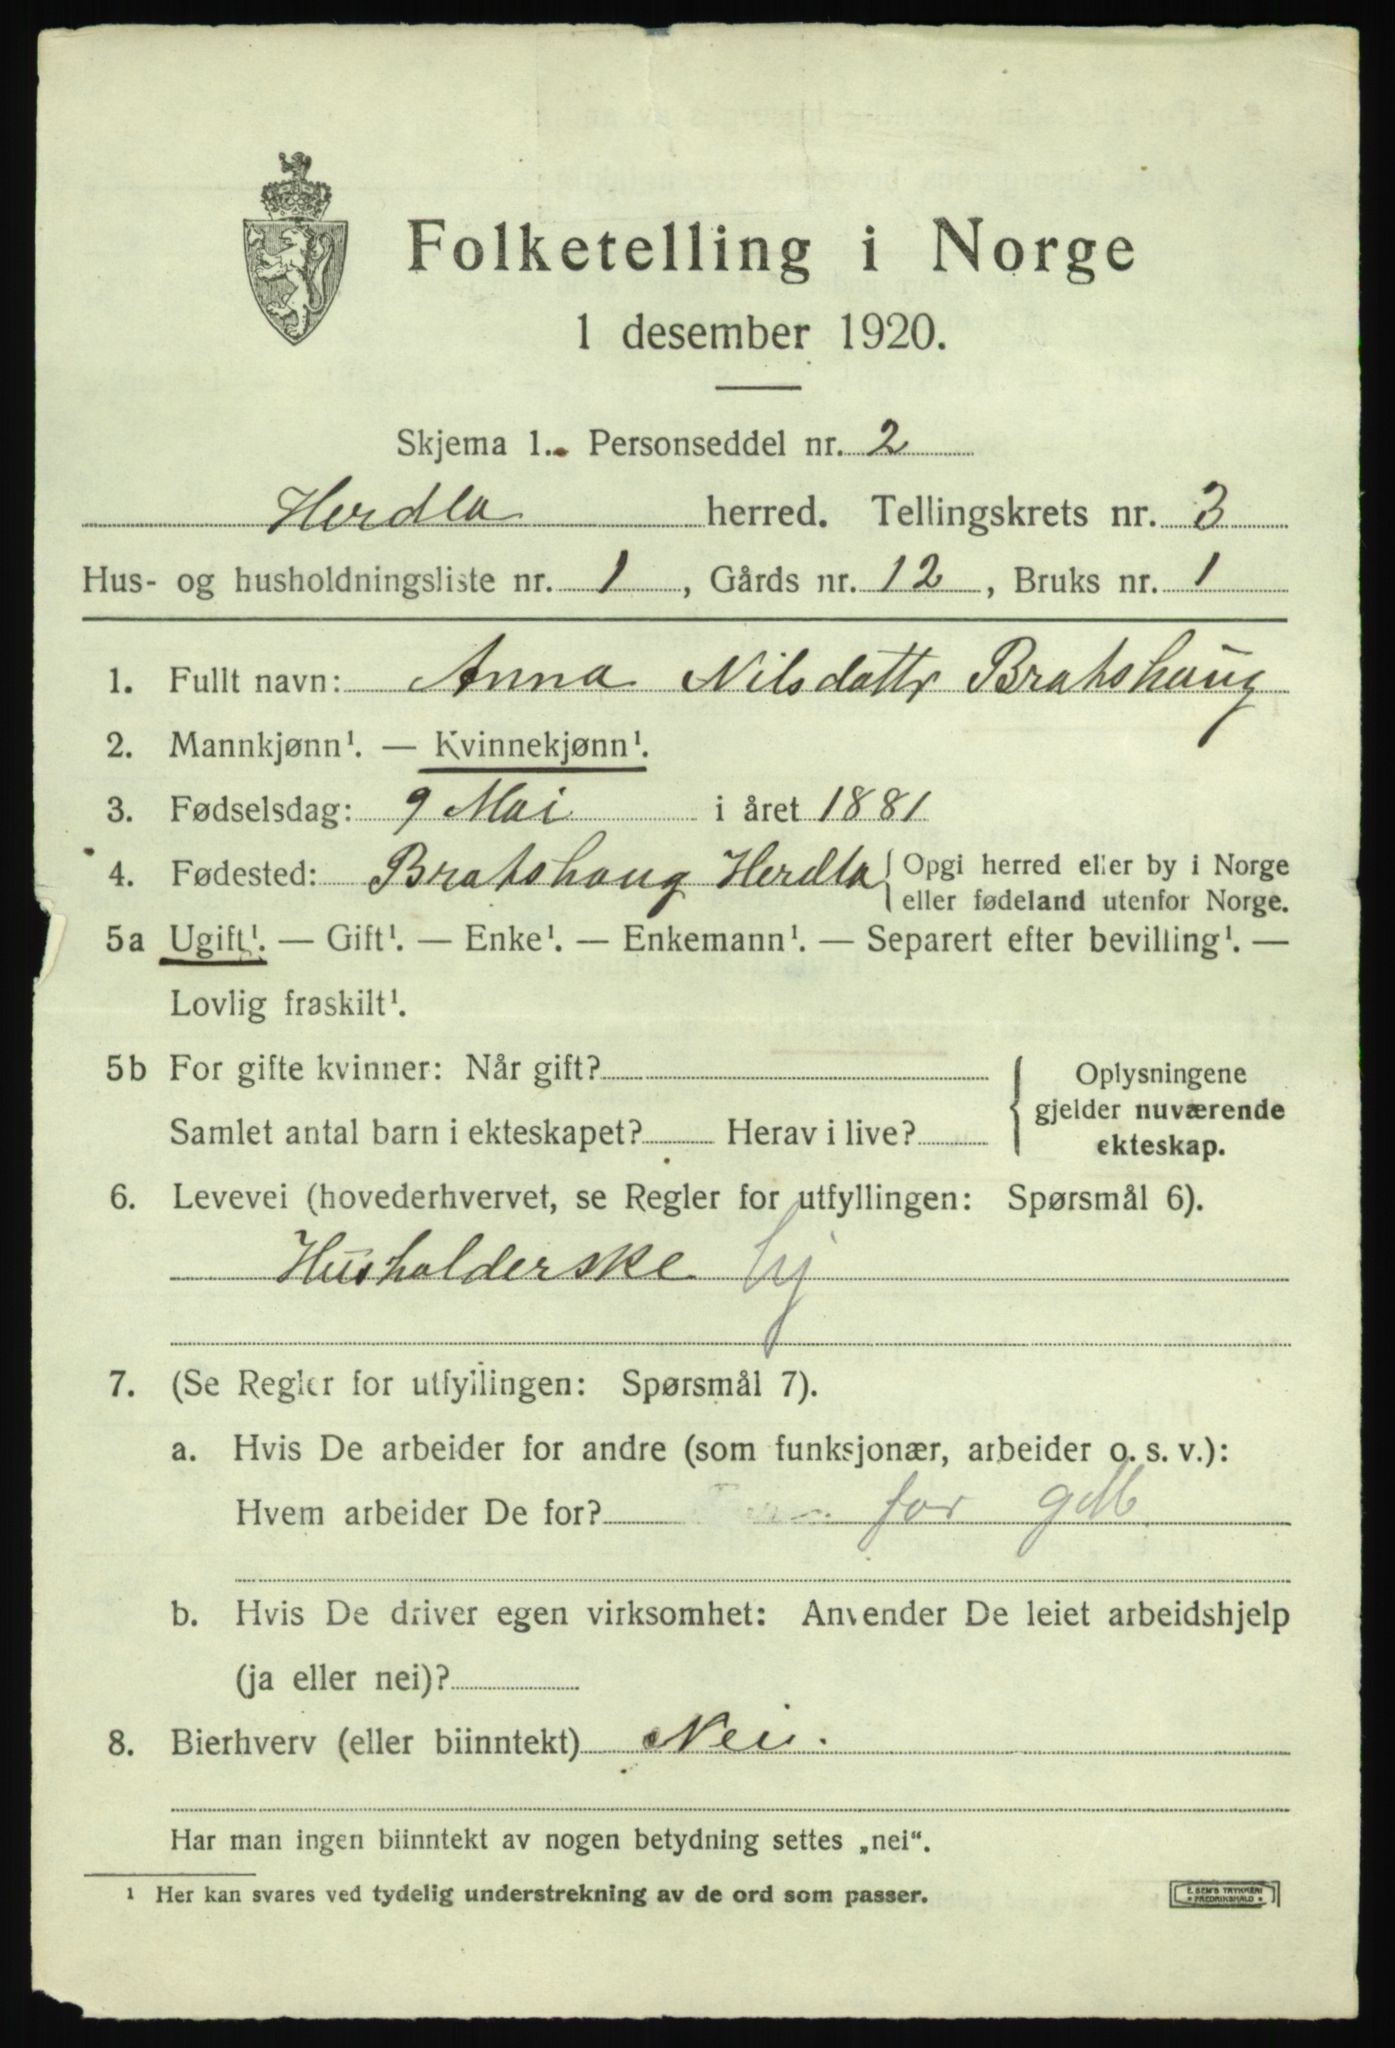 Folketelling i Norge
1 desember 1920.
Skjema 1. Personseddel nr. 2
Herdla herred. Tellingskrets nr. 3
Hus- og husholdningsliste nr. 1, Gårds nr. 12, Bruks nr. 1
1. Fullt navn: Anna Nilsdattr Bratshaug
2. Mannkjønn¹. — Kvinnekjønn¹.
3. Fødselsdag: 9 Mai i året 1881
4. Fødested: Bratshaug Herdla { Opgi herred eller by i Norge
eller fødeland utenfor Norge.
5a Ugift¹. — Gift¹. — Enke¹. — Enkemann¹. — Separert efter bevilling¹. —
Lovlig fraskilt¹.
5b For gifte kvinner: Når gift?
Samlet antal barn i ekteskapet? Herav i live?
{ Oplysningene
gjelder nuværende
ekteskap.
6. Levevei (hovederhvervet, se Regler for utfyllingen: Spørsmål 6).
Husholderske hj
7. (Se Regler for utfyllingen: Spørsmål 7).
a. Hvis De arbeider for andre (som funksjonær, arbeider o. s. v.):
Hvem arbeider De for? for
b. Hvis De driver egen virksomhet: Anvender De leiet arbeidshjelp
(ja eller nei)?
8. Bierhverv (eller biinntekt) Nei.
Har man ingen biinntekt av nogen betydning settes „nei“.
¹ Her kan svares ved tydelig understrekning av de ord som passer.
E. SEM'S TRYKKERI
FREDRIKSHALD